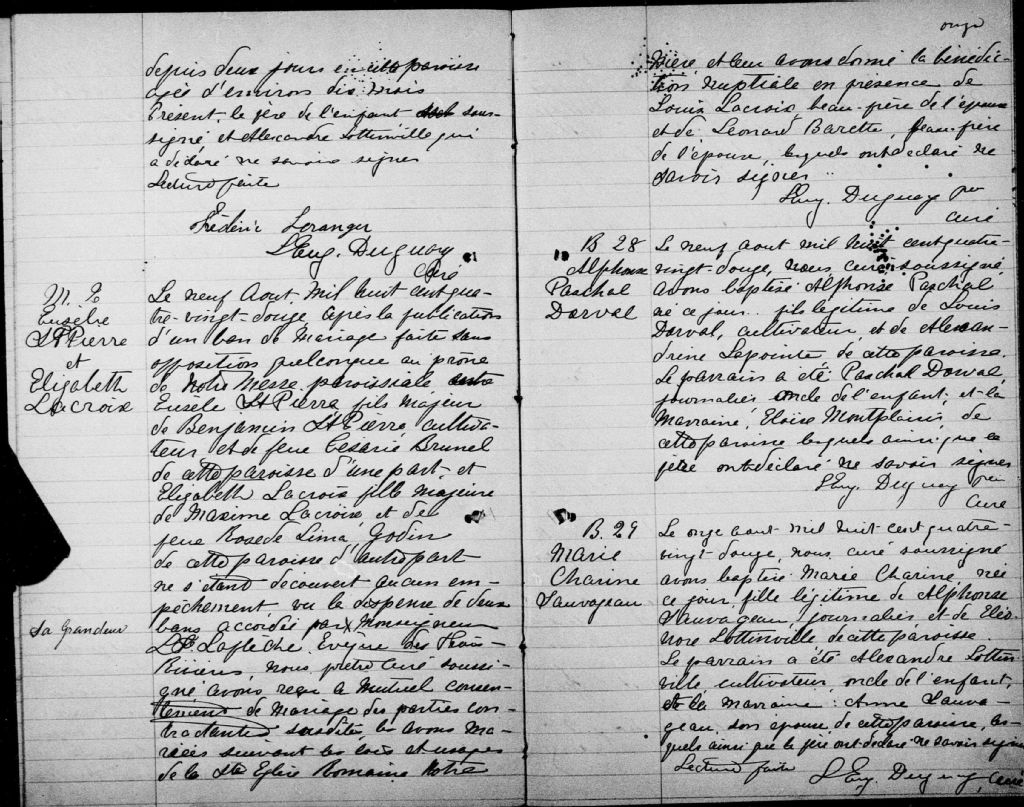 depuis deux jours en cette paroisse
agé d'environ dix mois
Présent le père de l'enfant sous-
signé, et Alexandre Lottinville qui
a déclaré ne savoir signer
Lecture faite
Frédéric Loranger
L Eug. Duguay
Curé
M. 7
Eusèbe
St Pierre
et
Elizabeth
Lacroix
Le neuf Aout mil huit cent qua-
tre-vingt-douze après la publication
d'un ban de Mariage faite sans
opposition quelconque au prône
de notre Messe paroissiale entre
Eusèbe St Pierre fils majeur
de Benjamin St Pierre cultiva-
teur et de feue Cesarie Brunel
de cette paroisse d'une part et
Elizabeth Lacroix fille majeure
de Maxime Lacroix et de
feue Rose de Lima Godin
de cette paroisse d'autre part
ne s'étant découvert aucun em-
pêchement, vu la dispense de deux
bans accordée par X Monseigneur
Sa Grandeur
L. F. Laflèche Evêque des Trois-
Rivières, nous prêtre curé soussi-
gné avons reçu le mutuel consen-
tement de Mariage des parties con-
tractantes susdites, les avons Ma-
riées suivant les lois et usages
de la Ste Eglise Romaine Notre
onze
Mère et leur avons donné la bénédic-
tion nuptiale en présence de
Louis Lacroix beau-père de l'épouse
et de Leonard Barette, beau-frère
de l'épouse, lesquels ont déclaré ne
savoir signer
L Eug. Duguay ptre
Curé
B 28
Alphonse
Paschal
Dorval
Le neuf Aout mil huit cent quatre-
vingt-douze, nous curé soussigné
avons baptisé Alphonse Paschal
né ce jour fils légitime de Louis
Dorval, cultivateur, et de Alexan-
drine Lepointe de cette paroisse.
Le parrain a été Paschal Dorval,
journalier oncle de l'enfant, et la
Marraine, Eloise Montplaisir, de
cette paroisse lesquels ainsi que le
père ont déclaré ne savoir signer
L Eug. Duguay ptre
Curé
B. 29
Marie
Charine
Sauvageau
Le onze aout mil huit cent quatre-
vingt douze, nous curé soussigné
avons baptisé Marie Charine, née
ce jour, fille légitime de Alphonse
Sauvageau, journalier, et de Eléo-
nore Lottinville de cette paroisse.
Le parrain a été Alexandre Lottin-
ville cultivateur, oncle de l'enfant,
et la marraine: Anne Sauva-
geau, son épouse de cette paroisse, les-
quels ainsi que le père ont déclaré ne savoir signer
Lecture faite
L Eug. Duguay, Curé